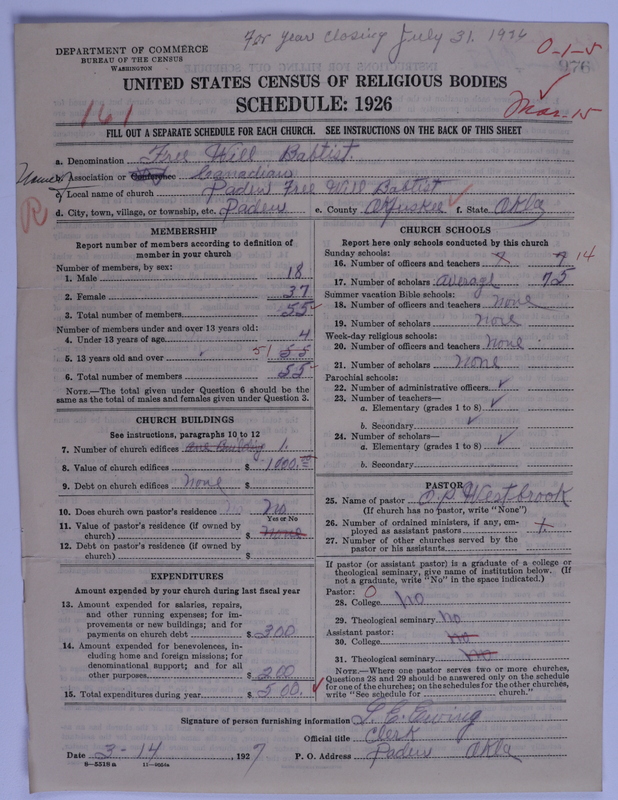 For year closing July 31. 1926
DEPARTMENT OF COMMERCE
BUREAU OF THE CENSUS
WASHINGTON
0-1-5
976
UNITED STATES CENSUS OF RELIGIOUS BODIES
SCHEDULE: 1926
161
Mar. 15
FILL OUT A SEPARATE SCHEDULE FOR EACH CHURCH. SEE INSTRUCTIONS ON THE BACK OF THIS SHEET
a. Denomination Free Will Baptist.
b. Association or Conference Canadian
c. Local name of church Paden Free Will Baptist
d. City, town, village, or township, etc. Paden e. County Okfuskee f. State Okla
R
MEMBERSHIP
Report number of members according to definition of member in your church
Number of members, by sex:
1. Male 18
2. Female 37
3. Total number of members 55
Number of members under and over 13 years old:
4. Under 13 years of age 4
5. 13 years old and over 51 55
6. Total number of members 55
NOTE.—The total given under Question 6 should be the same as the total of males and females given under Question 3.
CHURCH BUILDINGS
See instructions, paragraphs 10 to 12
7. Number of church edifices one building 1
8. Value of church edifices $ 1000.00
9. Debt on church edifices none $
10. Does church own pastor's residence No
Yes or No
11. Value of pastor's residence (if owned by church) $ none
12. Debt on pastor's residence (if owned by church) $
EXPENDITURES
Amount expended by your church during last fiscal year
13. Amount expended for salaries, repairs, and other running expenses; for improvements or new buildings; and for payments on church debt $ 300
14. Amount expended for benevolences, including home and foreign missions; for denominational support; and for all other purposes $ 200
15. Total expenditures during year $ 500.
CHURCH SCHOOLS
Report here only schools conducted by this church
Sunday schools:
16. Number of officers and teachers 7 14
17. Number of scholars average 75
Summer vacation Bible schools:
18. Number of officers and teachers none
19. Number of scholars none
Week-day religious schools:
20. Number of officers and teachers none
21. Number of scholars none
Parochial schools:
22. Number of administrative officers
23. Number of teachers—
a. Elementary (grades 1 to 8)
b. Secondary
24. Number of scholars—
a. Elementary (grades 1 to 8)
b. Secondary
PASTOR
25. Name of pastor O. P. Westbrook
(If church has no pastor, write "None")
26. Number of ordained ministers, if any, employed as assistant pastors
27. Number of other churches served by the pastor or his assistants
If pastor (or assistant pastor) is a graduate of a college or theological seminary, give name of institution below. (If not a graduate, write "No" in the space indicated.)
Pastor: 0
28. College no
29. Theological seminary no
Assistant pastor:
30. College no
31. Theological seminary no
NOTE.—Where one pastor serves two or more churches, Questions 28 and 29 should be answered only on the schedule for one of the churches; on the schedules for the other churches, write "See schedule for church."
Signature of person furnishing information L. E. Ewing
Official title Clerk
Date 3-14, 1927 P. O. Address Paden Okla
8-5518a 11-9034a